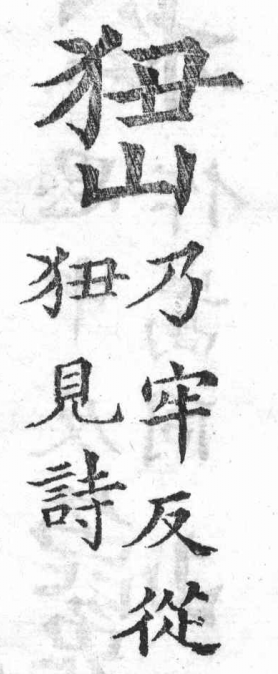 峱
乃牢反從
狃見詩